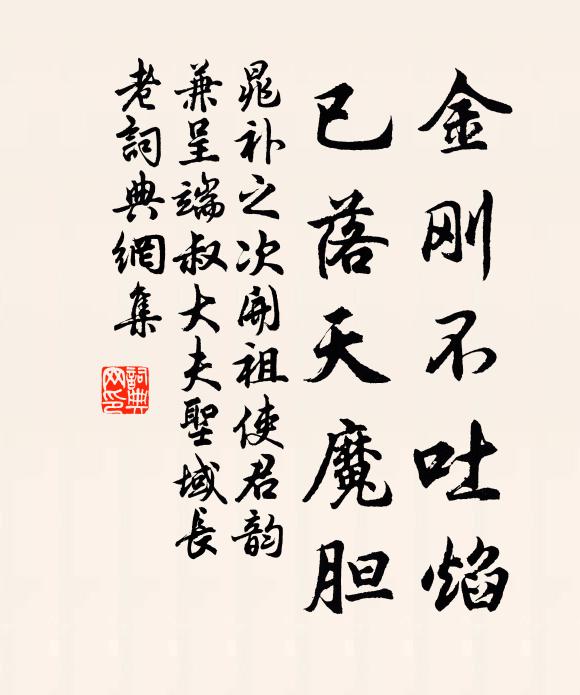 金刚不吐焰
已落天魔胆
晁补之次開祖使君韵
兼呈端叔大夫聖域長
老詞典網集
詞典
网印